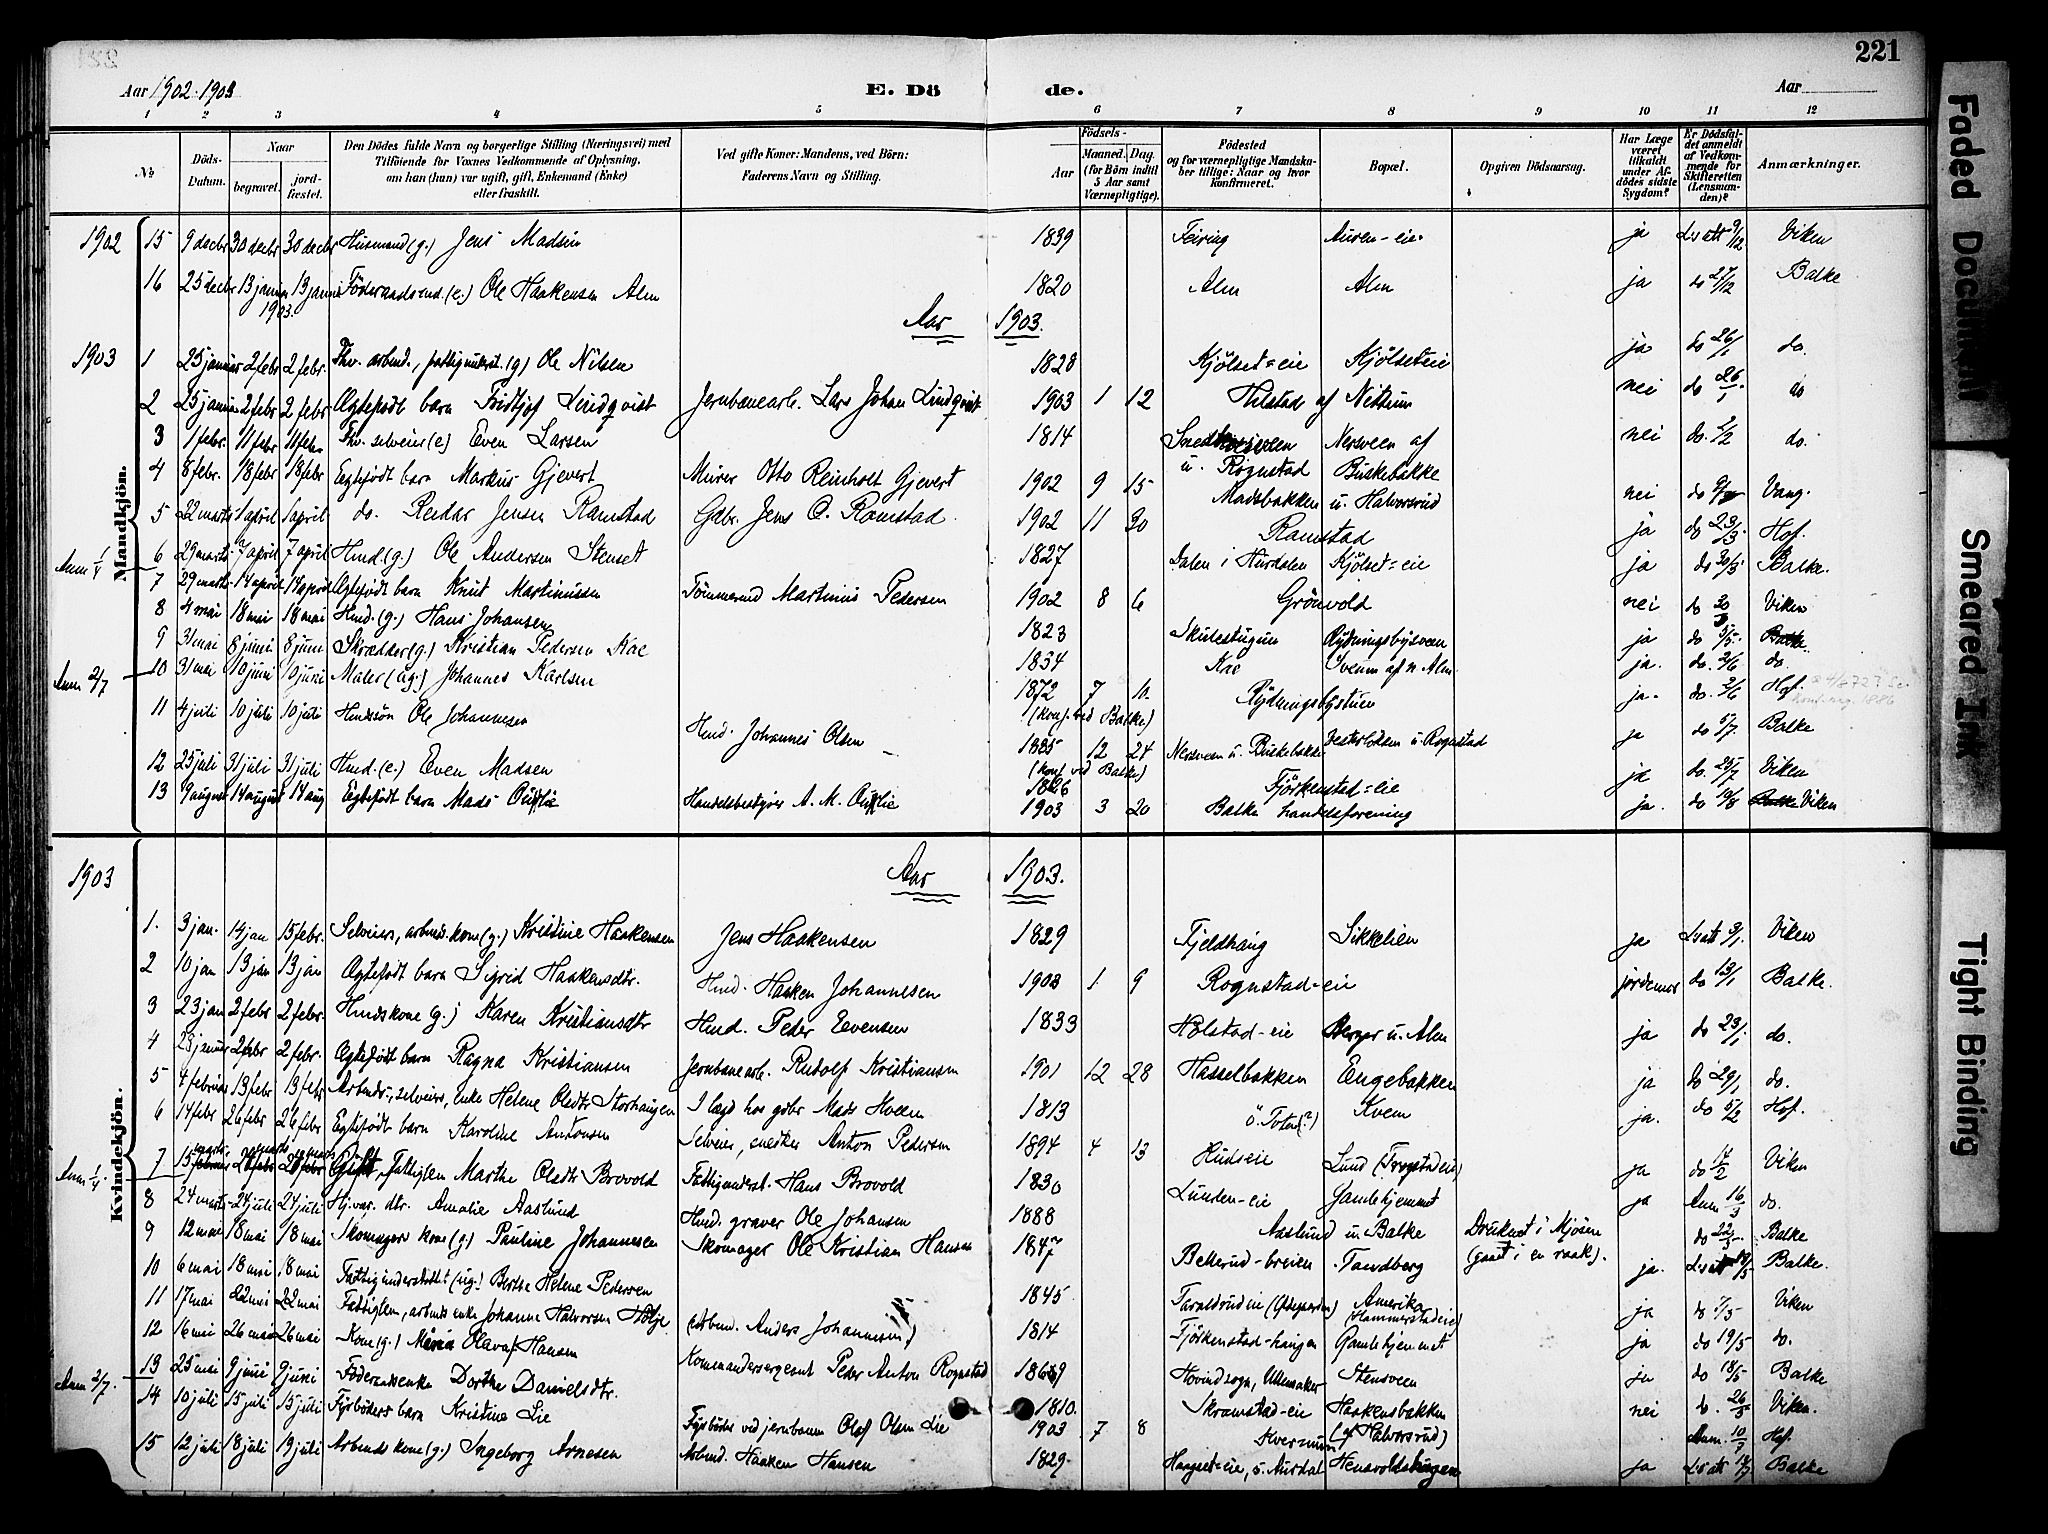 221
Aar 1902-1903 E. Dö de. Aar
1 2 3 4 5 6 7 8 9 10 11 12
No Döds-Datum. Naar begravet. jord-fæstet. Den Dödes fulde Navn og borgerlige Stilling (Næringsvei) med Tilföiende for Voxnes Vedkommende af Oplysning, om han (hun) var ugift, gift, Enkemand (Enke) eller fraskilt. Ved gifte Koner: Mandens, ved Börn: Faderens Navn og Stilling. Födsels- Aar Maaned. Dag. (for Börn indtil 5 Aar samt Værnepligtige). Födested og for værnepligtige Mandskaber tillige: Naar og hvor konfirmeret. Bopæl. Opgiven Dödsaarsag. Har Læge været tilkaldt under Afdödes sidste Sygdom? Er Dödsfaldet anmeldt af Vedkommende for Skifteretten (Lensmanden)? Anmærkninger.
Mandkjön.
1902 15 9 decbr 30 decbr 30 decbr Husmand (g.) Jens Madsen 1839 Feiring Auren-eie ja Ls att 9/12 Viken
16 25 decbr 13 januar 1903. 13 januar Föderaadsmd. (e.) Ole Haakensen Alm 1820 Alm Alm ja do 27/12 Balke
Aar 1903.
1903 1 25 januar 2 febr 2 febr. Fhv. arbmd., fattigunderst. (g) Ole Nilsen 1828 Kjölset=eie Kjölseteie ja do 26/1 do.
2 25 januar 2 febr 2 febr Ægtefødt barn Fridtjof Lindqvist Jernbanearb. Lars Johan Lindqvist 1903 1 12 Hilstad af Nettum nei do 26/1 do
3 1 febr. 11 febr 11 febr Fhv. selveier (e) Even Larsen 1814 u. Rognstad Nesween af Buskebakke nei do. 2/2 do.
4 8 febr. 18 febr 18 febr Egtefødt barn Markus Gjevert Murer Otto Reinholt Gjevert 1902 9 15 Madsbakken u. Halvorsrud nei do Vang.
5 22 marts 1 april 1 april do. Reidar Jensen Ramstad Gdbr. Jens O. Ramstad. 1902 11 30 Ramstad ja do 23/3 Hof.
Anm 1/4 6 29 marts 7 april 7 april Hmd (g.) Ole Andersen Stenset 1827 Dalen i Hurdalen Kjölset=eie ja do 30/3 Balke.
7 29 marts 14 april 14 april Ægtefødt barn Knut Martinussen Tömmermd Martinus Pedersen 1902 8 6 Grönvold nei do 30/3 Viken
8 4 mai 18 mai 18 mai Hmd. (g.) Hans Johansen 1823 Skulestugun Rydningsbysveen ja do 5/5. Balke.
9 31 mai 8 juni 8 juni Skrædder (g.) Kristian Pedersen Kae 1834 Kae Sveum af n Alm. ja. do. 2/6 do.
Anm 2/7 10 31 mai 10 juni 10 juni Maler (ug.) Johannes Karlsen 1872 7 10. (konf. ved Balke) Rydningsbystuen ja. do. 2/6 Hof.
11 4 juli 10 juli 10 juli Hmdssön Ole Johannesen Hmd. Johannes Olsen 1885 12 24 (konf ved Balke) Nersveen u. Buskebakke Vesterlöken u. Rognstad ja do 5/7. Balke
12 25 juli 31 juli 31 juli Hmd. (e.) Even Madsen 1826 Fjörkenstad=eie ja do. 28/7 Viken
13 9 august 14 august 14 aug Egtefødt barn Mads Aurlie Handelsbestyrer A. M. Aurlie 1903 3 20 Balke handelsforening ja. do 10/8 Balke Viken
Kvindekjön.
1903 Aar 1903.
1. 3 jan. 14 jan 15 febr. Selveiers, arbmds. kone (g.) Kristine Haakensen Jens Haakensen 1829 Fjeldhaug Sikkelien ja Ls att 9/1. Viken
2 10 jan 13 jan 13 jan Ægtefødt barn Sigrid Haakensdtr. Hmd. Haaken Johannesen 1903 1 9 Rognstad-eie jordemor do 13/1 Balke.
3 23 jan 2 febr 2 febr. Hmdskone (g.) Karen Kristiansdtr Hmd. Peder Evensen 1833 Holstad-eie Berger u. Alm ja do 23/1 do.
4 28 januar 2 febr 2 febr. Ægtefødt barn Ragna Kristiansen Jernbanearb. Rudolf Kristiansen 1901 12 28 Hasselbakken Engebakken ja do 29/1 do.
5 4 februar 13 febr 13 febr Arbmds-, selveiers, enke Helene Olsdtr Storhaugen I lægd hos gdbr Mads Kveen 1813 ö. Toten (?) Kvem ja. do 5/2 Hof.
6 14 febr 26 febr 26 febr Egtefødt barn Karoline Antonsen Selveier, snedker Anton Pedersen 1894 4 13 Hudseie Lund (Frogstadeie) ja do 14/2 Viken
Anm 1/4. 7 15 februar marts 28 febr 28 febr Gift, Fattiglem Marthe Olsdtr Brovold Fattigunderst. Hans Brovold 1830 Lunden-eie Gamlehjemmet ja Anm 16/3 do.
8 24 marts 24 juli 24 juli Hj.vær. dtr. Amalie Aaslund Hmd. graver Ole Johansen 1888 Aaslund u. Balke Druknet i Mjösen (gaat i en raak). do 22/3 Balke
9 12 mai 18 mai 18 mai Skomagers kone (g.) Pauline Johannesen Skomager Ole Kristian Hansen 1847 Betterud-breien Tandberg ja. Ls att Balke.
10 6 mai 18 mai 18 mai Fattigunderstöttet (ug.) Berthe Helene Pedersen 1845 Taraldrudeie Amerika (Hammerstadeie) ja do 7/5 Viken
11 17 mai 22 mai 22 mai Fattiglem, arbmds enke Johanne Halvorsen Hölje (Arbmd. Anders Johannesen) 1814 Fjörkenstad-haugen Gamlehjemmet ja do 19/5 do.
12 16 mai 26 mai 26 mai Kone (g.) Maria Olava Hansen Kommandersergeant Peder Anton Rognstad 1869 Hovindsogn, Ullensaker Stensveen ja do 18/5 Balke
Anm 2/7. 13 25 mai 9 juni 9 juni Föderaadsenke Dorthe Danielsdtr. 1810. Skramstad-eie Haakensbakken (af Halvorsrud) nei do. 26/5 Viken.
14 10 juli 15 juli 15 juli Fyrböters barn Kristine Lie Fyrböter ved jernbanen Olaf Olsen Lie 1903 7 8 Kvernum Anm. 10/7 Hof.
15 12 juli 18 juli 19 juli Arbmds kone (g.) Ingeborg Arnesen Arbmd. Haaken Hansen 1829. Haugset-eie, s. Aurdal Hensvoldshagen ja Ls att Balke
Faded Document
Smeared Ink
Tight Binding